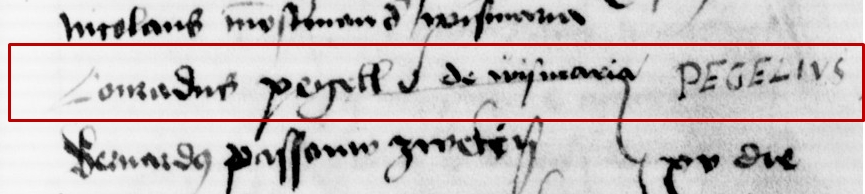 Nicolaus mostman d wismaria
Conradus pegell de wismaria PEGELIVS
Bernardus passow
xv die